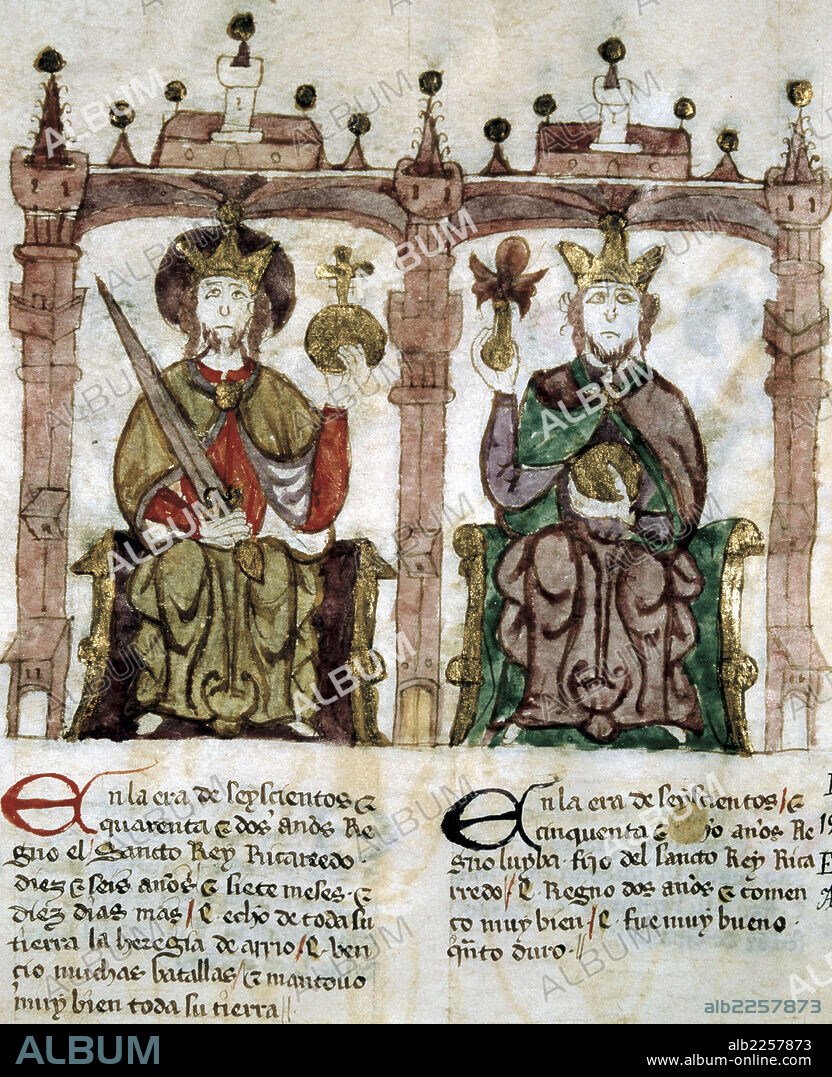 En la era de seyscientos &
quarenta & dos años Re
gno el Sancto Rey Ricaredo.
diez & seis años & siete meses. &
diez dias mas / E. echo de toda su
tierra la heregia de arrio / E ben
cio muchas batallas / & mantovo
muy bien toda su tierra //
En la era de seyscientos / &
cinquenta & años Re
gno luyba. fijo del sancto Rey Rica
rredo / E. Regno dos años & comen
ço muy bien / E. fue muy bueno.
qnto duro. //
ALBUM
alb2257873
ALBUM
alb2257873
www.album-online.com